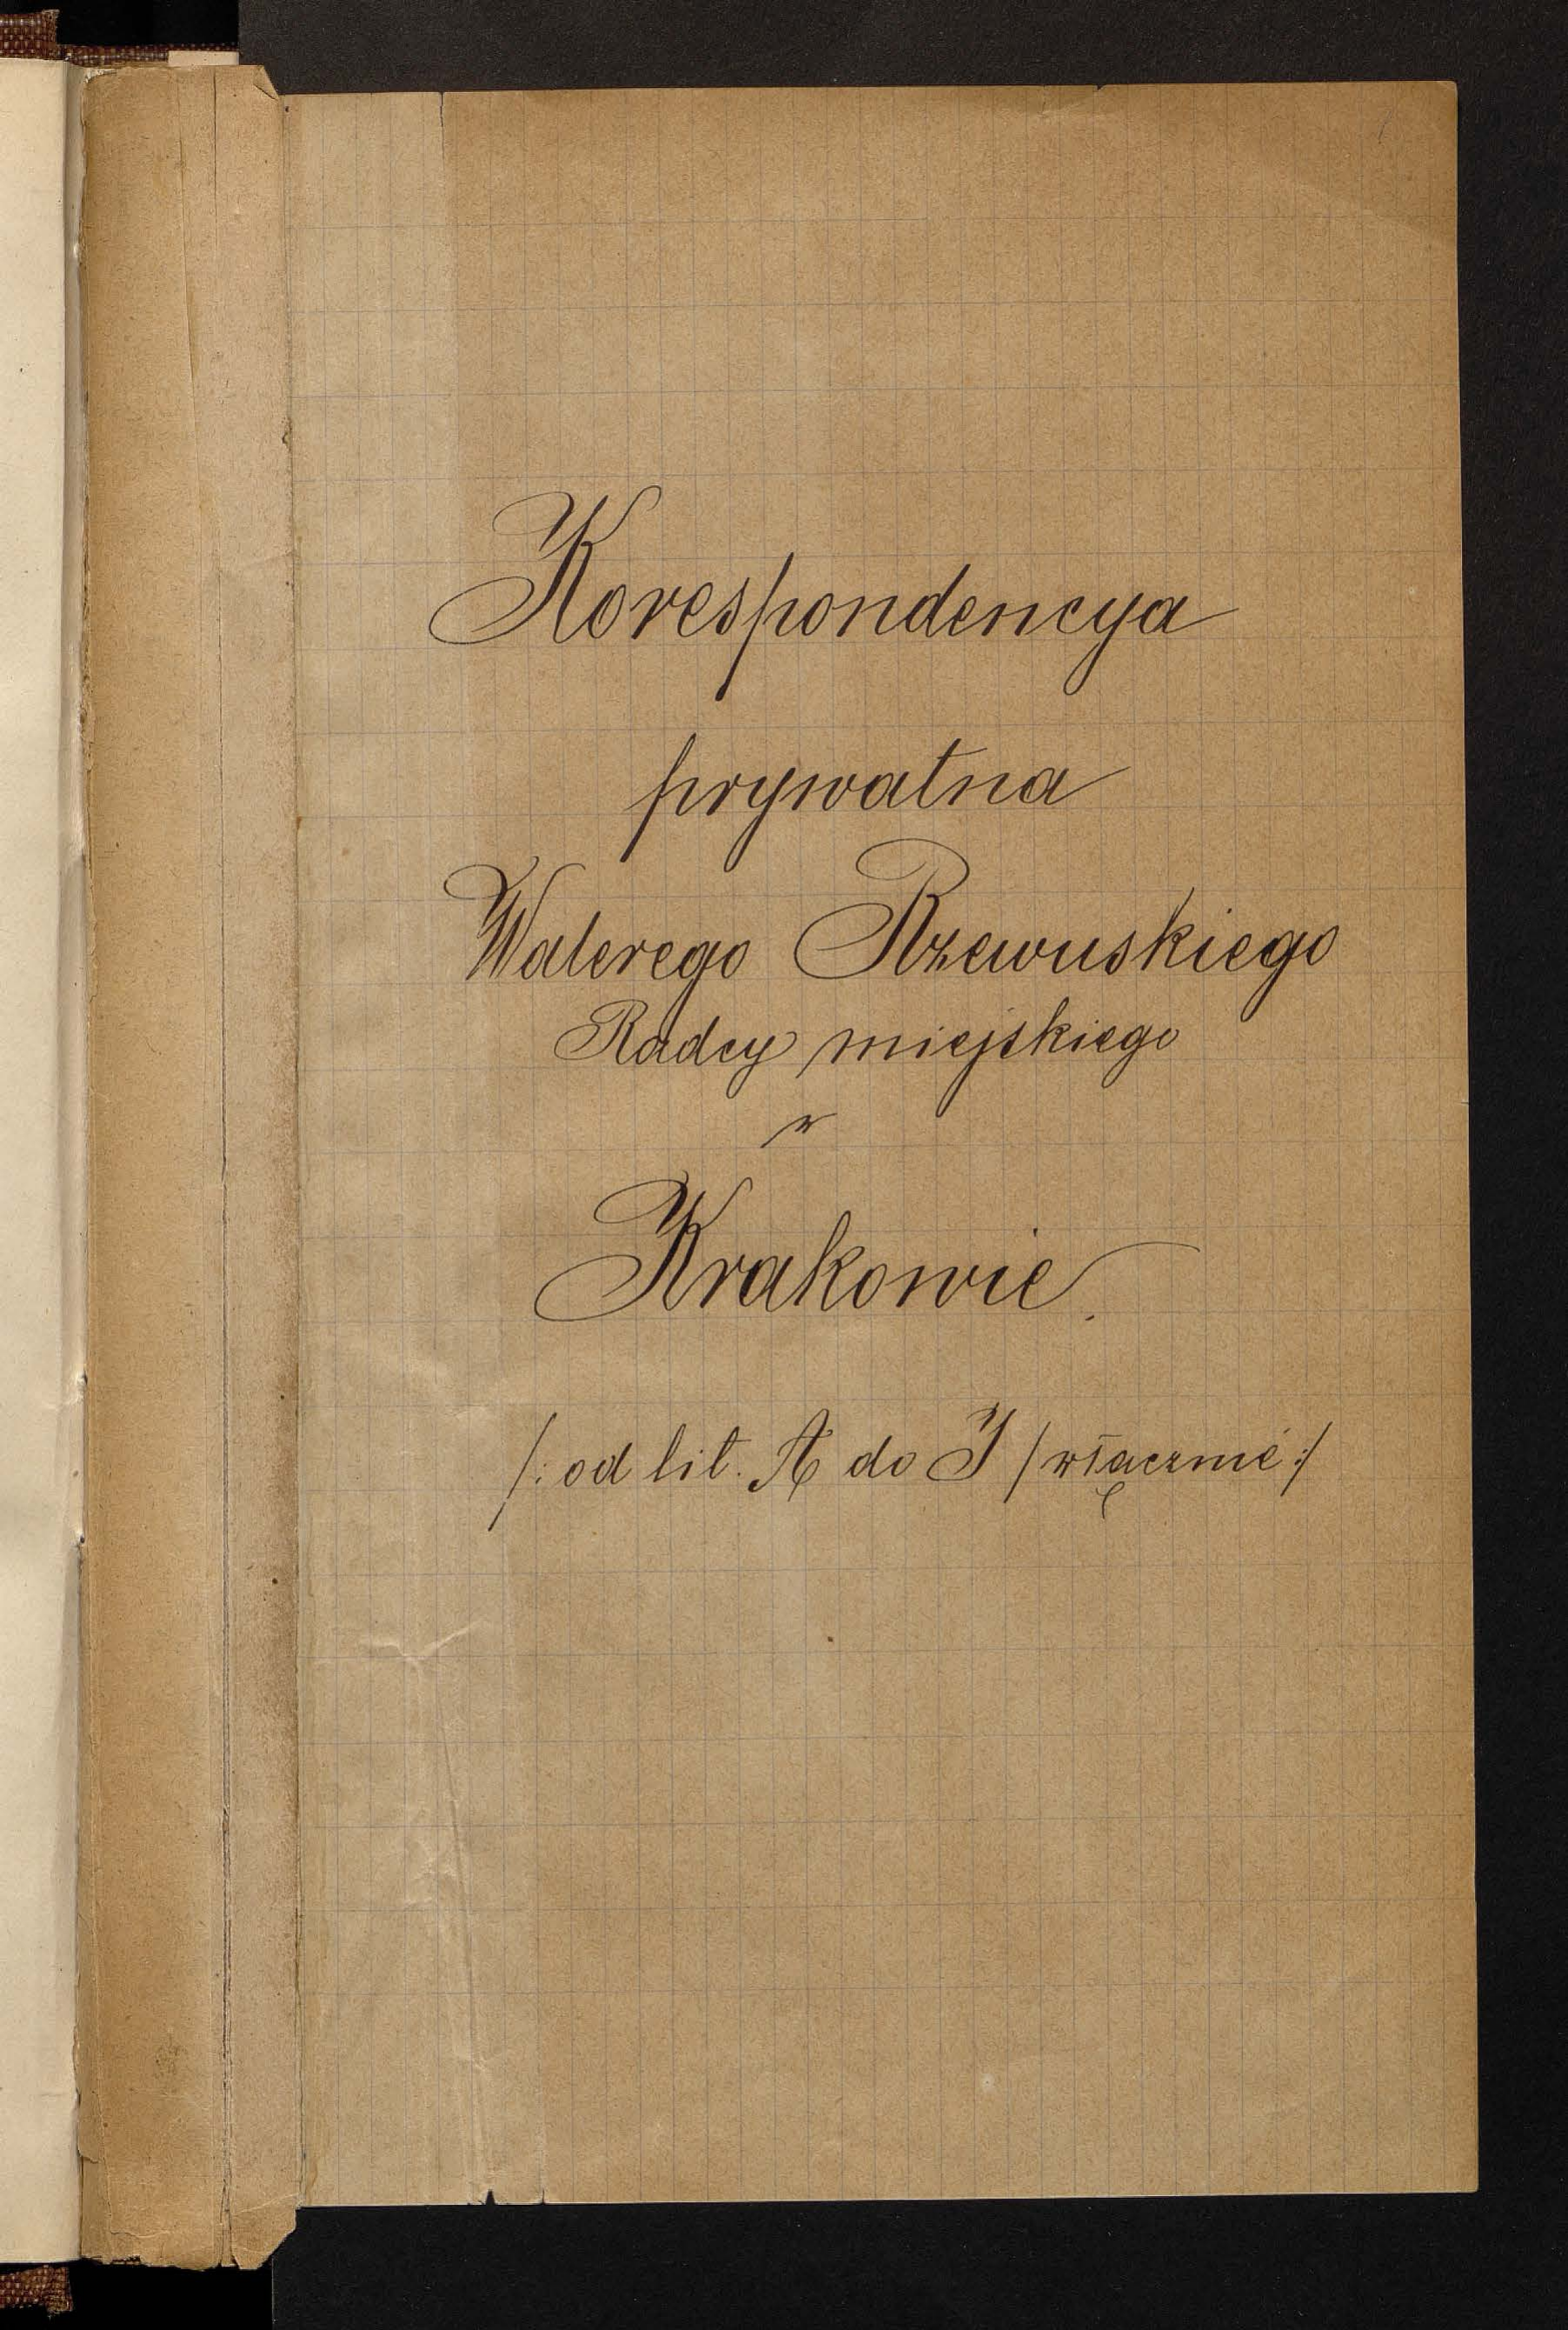 Korespondencya
prywatna
Walerego Rzewuskiego
Radcy miejskiego
w
Krakowie.
/: od lit. A do J /włącznie :/